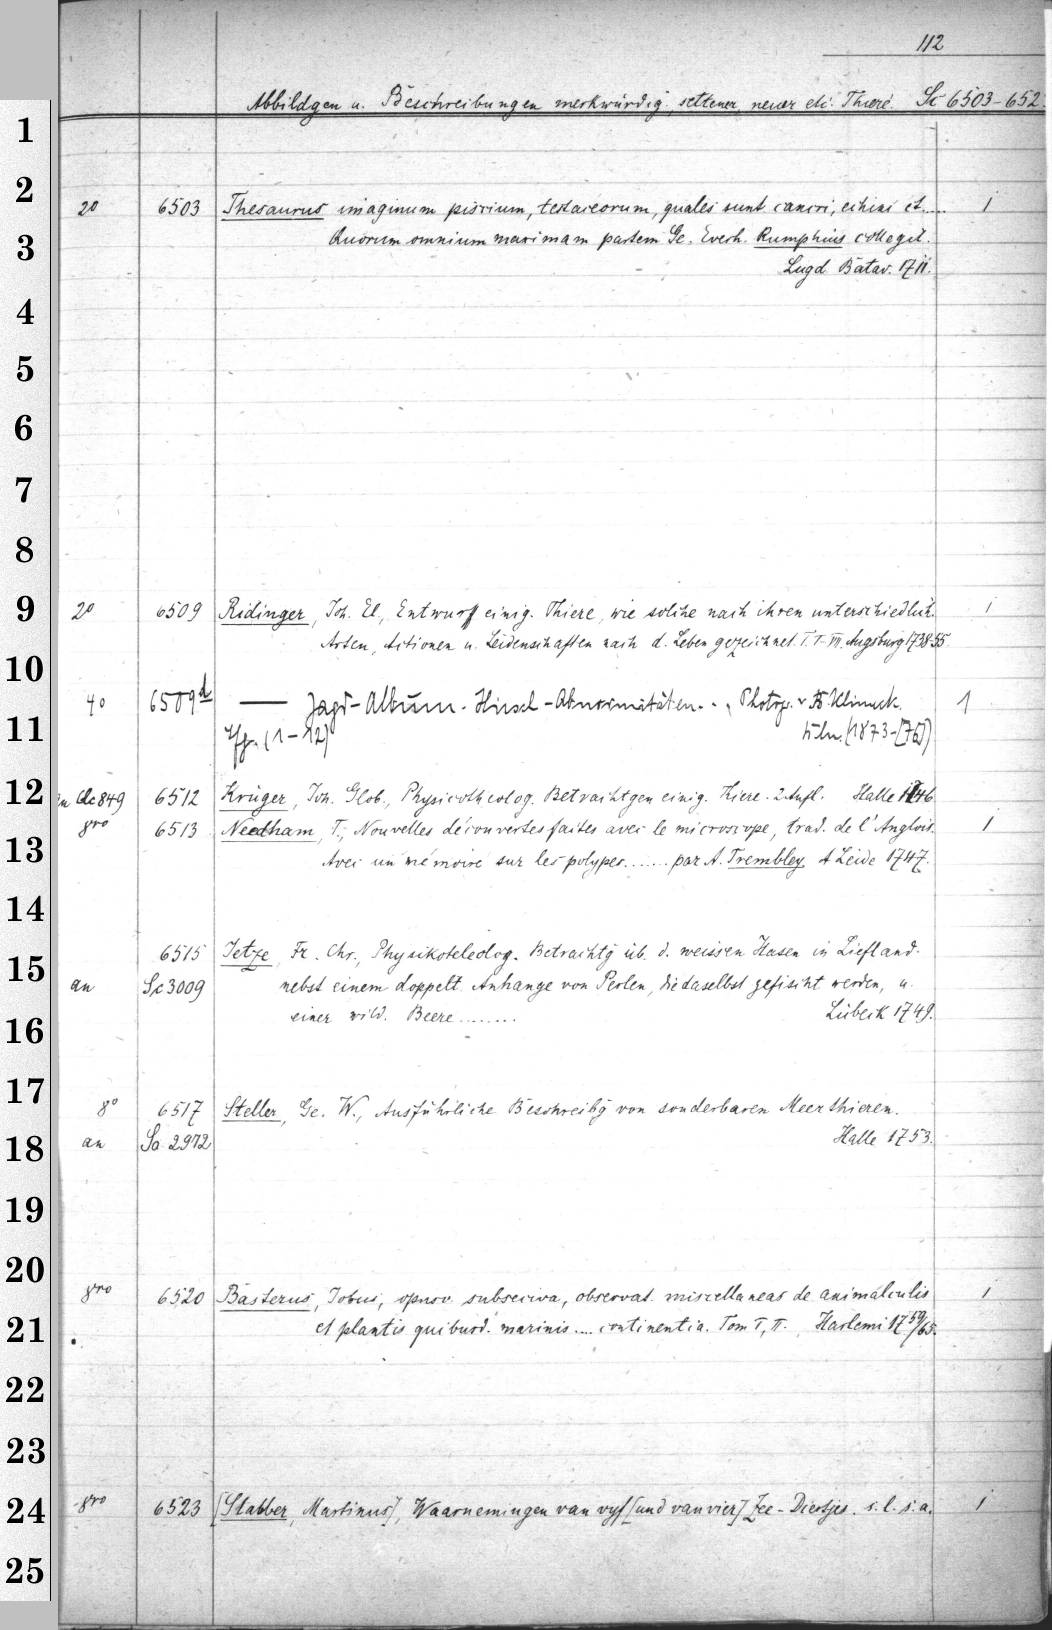 112
Abbildgen u. Beschreibungen merkwürdig., seltener, neuer etc. Thiere. Sc 6503-652
1
2
2o 6503 Thesaurus imaginum piscium, testaceorum, quales sunt cancri, echini et..... 1
3
Quorum omnium maximam partem Ge. Everh. Rumphius collegit.
Lugd. Batav. 1711.
4
5
6
7
8
9
2o 6509 Ridinger, Joh. El., Entwurff einig. Thiere, wie solche nach ihren unterschiedlich. 1
Arten, Actionen u. Leidenschaften nach d. Leben gezeichnet T. I-VII. Augsburg 1738-55
10
4o 6509d —— Jagd-Album. Hirsch-Abnormitäten. Photogr. v. Klimeck. 1
11
Lfg. (1-12) Köln. (1873-[76])
12
in Qc 849 6512 Krüger, Joh. Glob., Physicotheolog. Betrachtgen einig. Thiere. 2. Aufl. Halle 1746
8vo 6513 Needham, T., Nouvelles découvertes faites avec le microscope, trad. de l'Anglois. 1
13
Avec un mémoire sur les polypes...... par A. Trembley. A Leide 1747.
14
6515 Jetze, Fr. Chr., Physikoteleolog. Betrachtg üb. d. weissen Hasen in Liefland.
15
an Sc 3009 nebst einem doppelt. Anhange von Perlen, die daselbst gefischt werden, u.
einer wild. Beere........ Lübeck 1749.
16
17
8o 6517 Steller, Ge. W., Ausführliche Beschreibg von sonderbaren Meerthieren.
18
an Sa 2972 Halle 1753.
19
20
8vo 6520 Basterus, Jobus, opusc. subseciva, observat. miscellaneas de animalculis 1
21
et plantis quibusd. marinis.... continentia. Tom I, II. Harlemi 1759/65.
22
23
24
8vo 6523 [Slabber, Martinus], Waarnemingen van vyf [und van vier] Zee-Diertjes. s. l. s. a. 1
25